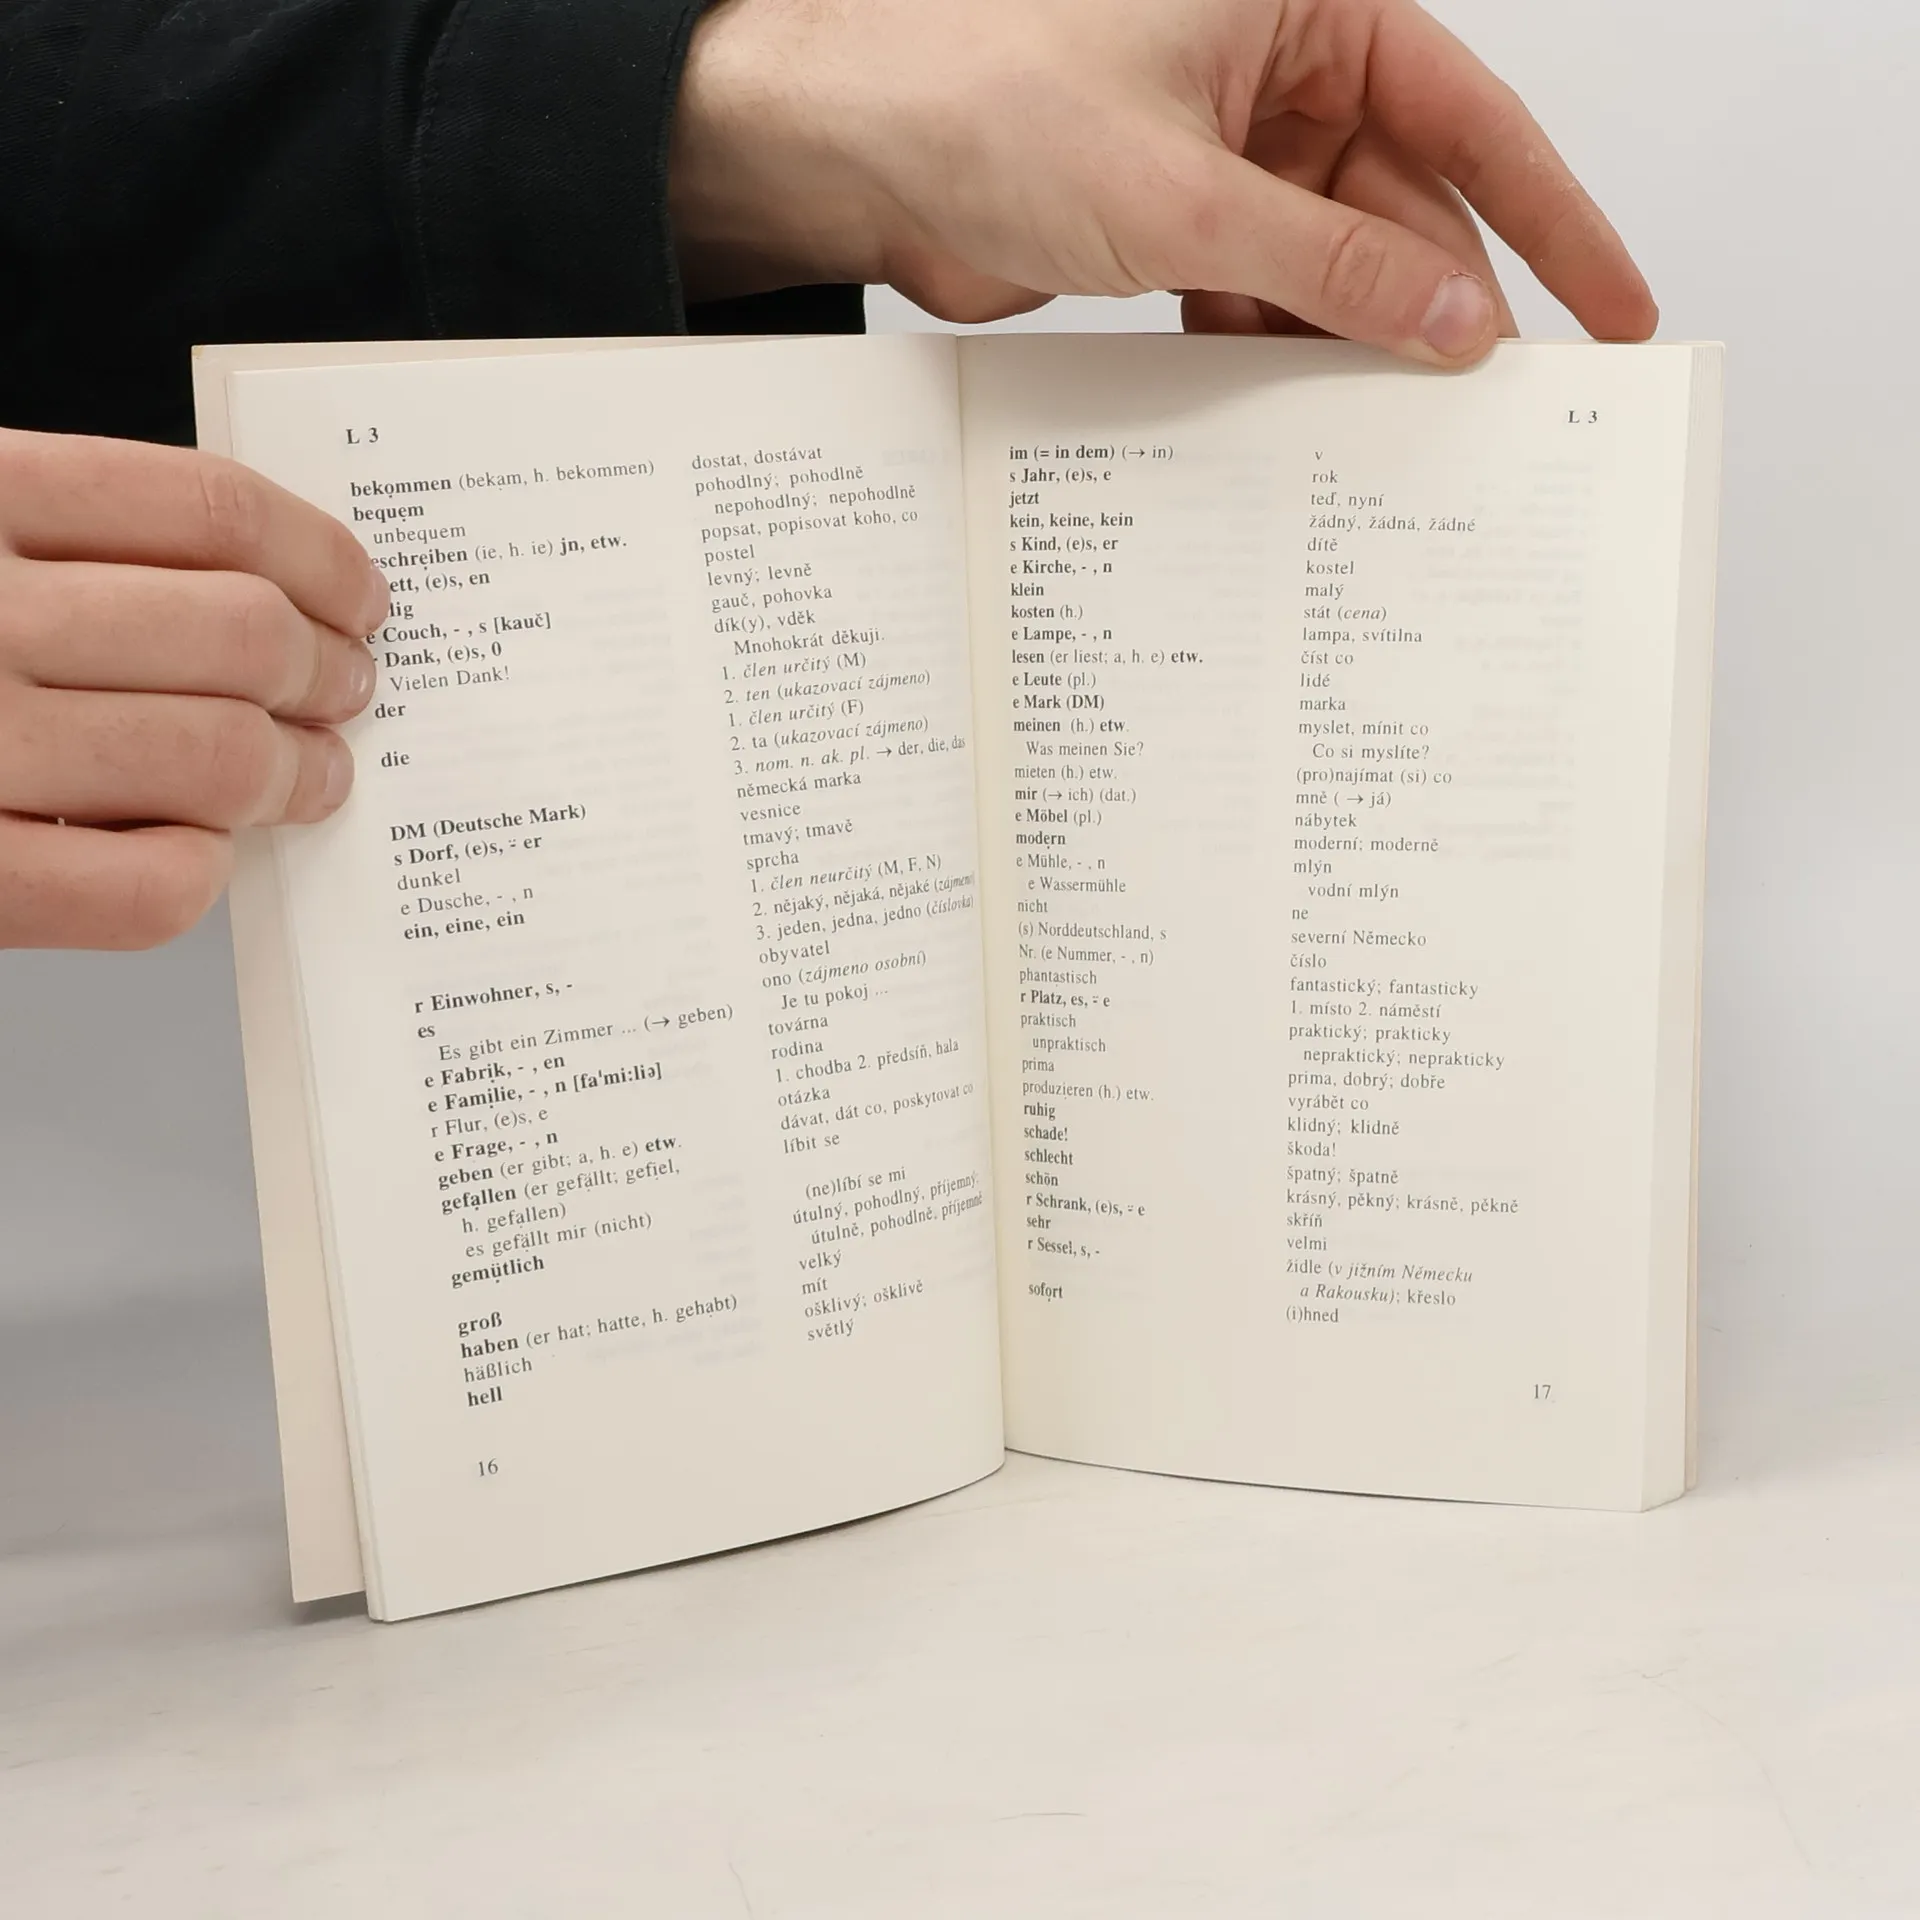 L 3
bekommen (bekam, h. bekommen)
bequem
unbequem
eschreiben (ie, h. ie) jn, etw.
ett, (e)s, en
lig
e Couch, - , s [kauč]
Dank, (e)s, 0
Vielen Dank!
der
die
DM (Deutsche Mark)
s Dorf, (e)s, ⸚ er
dunkel
e Dusche, - , n
ein, eine, ein
r Einwohner, s, -
es
Es gibt ein Zimmer ... (→ geben)
e Fabrik, - , en
e Familie, - , n [fa'mi:liə]
r Flur, (e)s, e
e Frage, - , n
geben (er gibt; a, h. e) etw.
gefallen (er gefällt; gefiel,
h. gefallen)
es gefällt mir (nicht)
gemütlich
groß
haben (er hat; hatte, h. gehabt)
häßlich
hell
dostat, dostávat
pohodlný; pohodlně
nepohodlný; nepohodlně
popsat, popisovat koho, co
postel
levný; levně
gauč, pohovka
dík(y), vděk
Mnohokrát děkuji.
1. člen určitý (M)
2. ten (ukazovací zájmeno)
1. člen určitý (F)
2. ta (ukazovací zájmeno)
3. nom. n. ak. pl. → der, die, das
německá marka
vesnice
tmavý; tmavě
sprcha
1. člen neurčitý (M, F, N)
2. nějaký, nějaká, nějaké (zájmeno)
3. jeden, jedna, jedno (číslovka)
obyvatel
ono (zájmeno osobní)
Je tu pokoj ...
továrna
rodina
1. chodba 2. předsíň, hala
otázka
dávat, dát co, poskytovat co
líbit se
(ne)líbí se mi
útulný, pohodlný, příjemný;
útulně, pohodlně, příjemně
velký
mít
ošklivý; ošklivě
světlý
16
L 3
im (= in dem) (→ in)
s Jahr, (e)s, e
jetzt
kein, keine, kein
s Kind, (e)s, er
e Kirche, - , n
klein
kosten (h.)
e Lampe, - , n
lesen (er liest; a, h. e) etw.
e Leute (pl.)
e Mark (DM)
meinen (h.) etw.
Was meinen Sie?
mieten (h.) etw.
mir (→ ich) (dat.)
e Möbel (pl.)
modern
e Mühle, - , n
e Wassermühle
nicht
(s) Norddeutschland, s
Nr. (e Nummer, - , n)
phantastisch
r Platz, es, ⸚ e
praktisch
unpraktisch
prima
produzieren (h.) etw.
ruhig
schade!
schlecht
schön
r Schrank, (e)s, ⸚ e
sehr
r Sessel, s, -
sofort
v
rok
teď, nyní
žádný, žádná, žádné
dítě
kostel
malý
stát (cena)
lampa, svítilna
číst co
lidé
marka
myslet, mínit co
Co si myslíte?
(pro)najímat (si) co
mně ( → já)
nábytek
moderní; moderně
mlýn
vodní mlýn
ne
severní Německo
číslo
fantastický; fantasticky
1. místo 2. náměstí
praktický; prakticky
nepraktický; neprakticky
prima, dobrý; dobře
vyrábět co
klidný; klidně
škoda!
špatný; špatně
krásný, pěkný; krásně, pěkně
skříň
velmi
židle (v jižním Německu
a Rakousku); křeslo
(i)hned
17